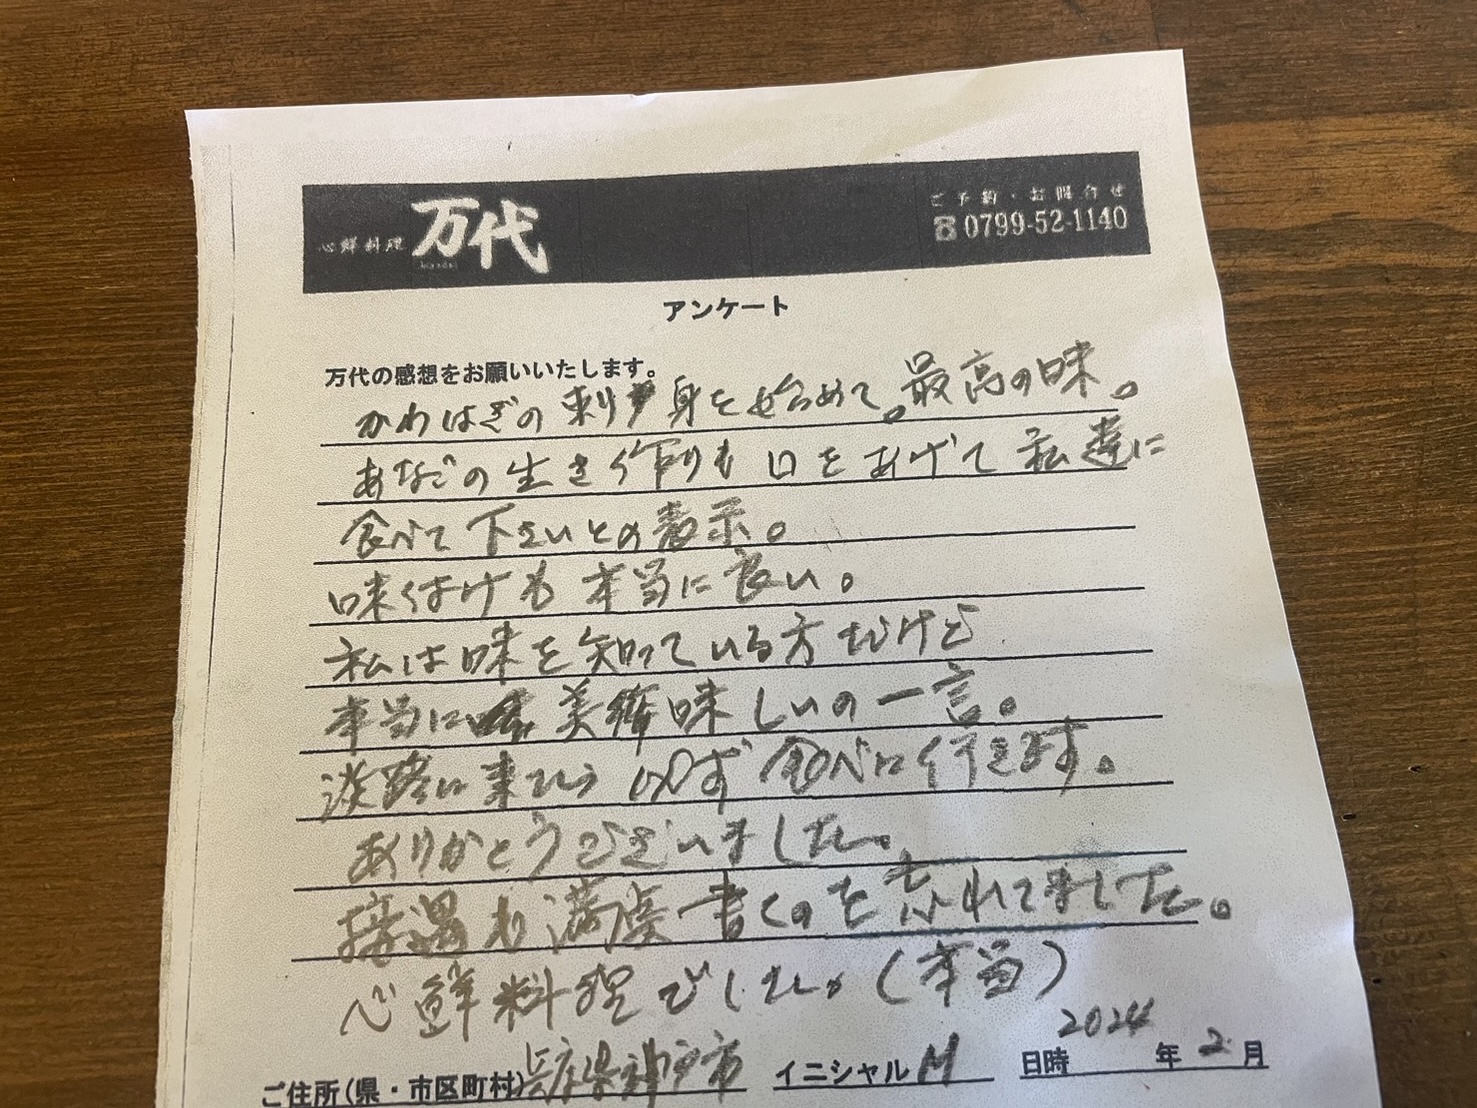 心鮮料理 万代
ご予約・お問合せ
☎0799-52-1140
アンケート
万代の感想をお願いいたします。
かわはぎの刺身を始めて。最高の味。
あなごの生き作りも口をあげて私達に
食べて下さいとの表示。
味付けも本当に良い。
私は味を知っている方だけど
本当に美味しいの一言。
淡路に来たら必ず食べに行きます。
ありがとうございました。
接遇も満度書くのを忘れてました。
心鮮料理でした。(本当)
ご住所(県・市区町村)兵庫県神戸市 イニシャル M 日時 2024 年 2 月